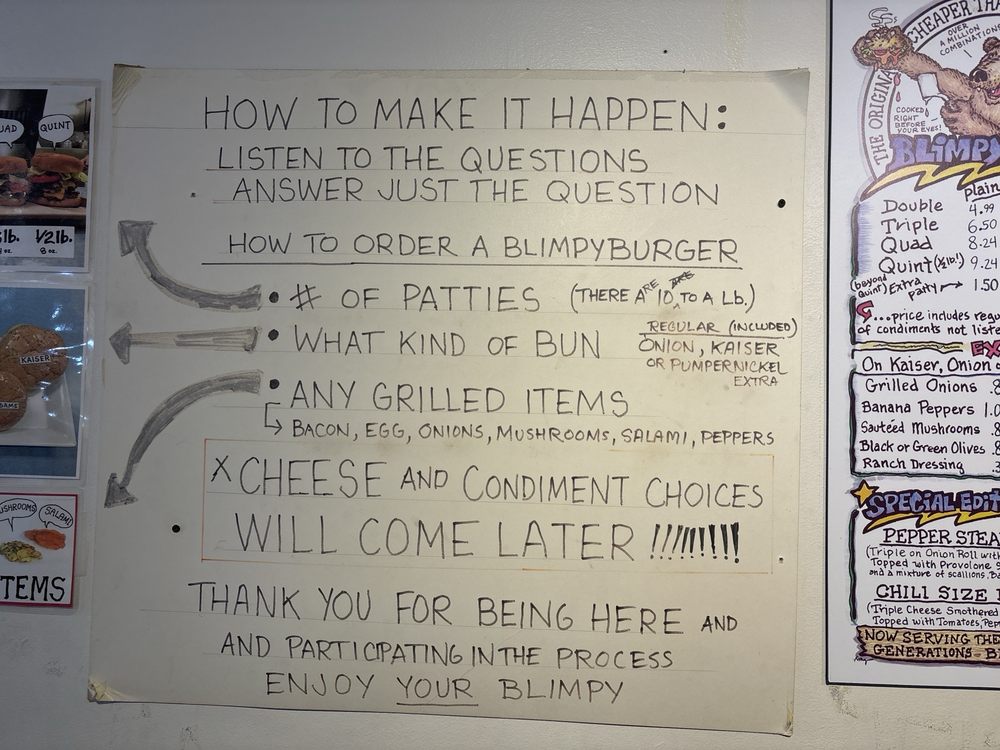 QUINT
1/2lb.
8 oz.
KAISER
SALAMI
HOW TO MAKE IT HAPPEN:
LISTEN TO THE QUESTIONS
ANSWER JUST THE QUESTION
HOW TO ORDER A BLIMPYBURGER
• # OF PATTIES (THERE ARE 10 TO A Lb.)
• WHAT KIND OF BUN
REGULAR (INCLUDED)
ONION, KAISER
OR PUMPERNICKEL
EXTRA
• ANY GRILLED ITEMS
BACON, EGG, ONIONS, MUSHROOMS, SALAMI, PEPPERS
X CHEESE AND CONDIMENT CHOICES
WILL COME LATER !!!!!!!!!
THANK YOU FOR BEING HERE AND
AND PARTICIPATING IN THE PROCESS
ENJOY YOUR BLIMPY
CHEAPER
OVER
A MILLION
COMBINATIONS
THE ORIGINAL
COOKED
RIGHT
BEFORE
YOUR EYES!
BLiMPY
plain
Double 4.99
Triple 6.50
Quad 8.24
Quint (1/2 lb!) 9.24
(beyond Quint) Extra patty 1.50
...price includes
of condiments not
On Kaiser, Onion
Grilled Onions
Banana Peppers
Sautéed Mushrooms
Black or Green Olives
Ranch Dressing
SPECIAL
PEPPER
(Triple on Onion Roll
Topped with Provolone
and a mixture of scallions,
CHILI SIZE
(Triple Cheese Smothered
Topped with Tomatoes,
NOW SERVING THE
GENERATIONS